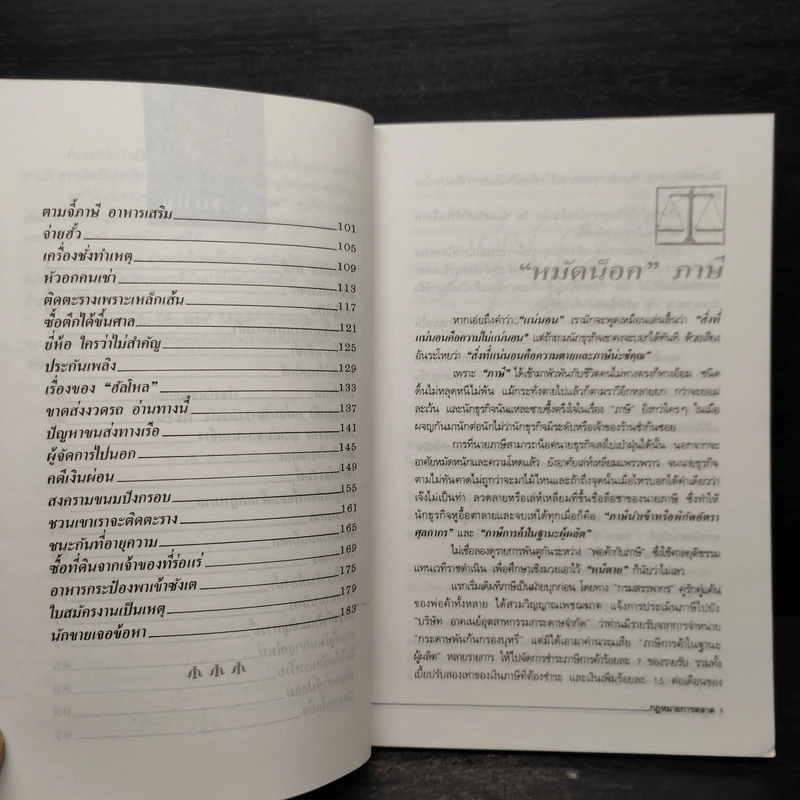 ตามจี้ภาษี อาหารเสริม 101
จ่ายฮั้ว 105
เครื่องชั่งทำเหตุ 109
หัวอกคนเช่า 113
ติดตะรางเพราะเหล็กเส้น 117
ซื้อตึกได้ขึ้นศาล 121
ยี่ห้อ ใครว่าไม่สำคัญ 125
ประกันเพลิง 129
เรื่องของ "ฮัลโหล" 133
ขาดส่งงวดรถ อ่านทางนี้ 137
ปัญหาขนส่งทางเรือ 141
ผู้จัดการไปนอก 145
คดีเงินผ่อน 149
สงครามขนมปังกรอบ 155
ชวนเขาเราจะติดตะราง 161
ชนะกันที่อายุความ 165
ซื้อที่ดินจากเจ้าของที่ร่อแร่ 169
อาหารกระป๋องพาเข้าซังเต 175
ใบสมัครงานเป็นเหตุ 179
นักขายเจอข้อหา 183
"หมัดน็อค" ภาษี
หากเอ่ยถึงคำว่า..."แน่นอน" เรามักจะพูดเหมือนเล่นลิ้นว่า "สิ่งที่
แน่นอนคือความไม่แน่นอน" แต่ถ้าถามนักธุรกิจเขาคงจะบอกได้ทันที ด้วยเสียง
อันระโหยว่า "สิ่งที่แน่นอนคือความตายและภาษีน่ะซีคุณ"
เพราะ "ภาษี" ได้เข้ามาพัวพันกับชีวิตคนไม่ทางตรงก็ทางอ้อม ชนิด
ดิ้นไม่หลุดหนีไม่พ้น แม้กระทั่งตายไปแล้วก็ตามราวีอีกหลายยก กว่าจะยอม
ละเว้น และนักธุรกิจนั่นแหละซาบซึ้งตรึงใจในเรื่อง "ภาษี" ยิ่งกว่าใครๆ ในเมื่อ
ผจญกันมานักต่อนักไม่ว่านักธุรกิจมีระดับหรือเจ้าของร้านชำกันซอย
การที่นายภาษีสามารถน็อคนายธุรกิจลงไปเปาฝุ่นได้นั้น นอกจากจะ
อาศัยหมัดหนักและความโหดแล้ว ยังอาศัยเล่ห์เหลี่ยมแพรวพราว จนนายธุรกิจ
ตามไม่ทันคาดไม่ถูกว่าจะมาไม้ไหนและถ้าถึงจุดนั้นเมื่อไหร่บอกได้คำเดียวว่า
เจ๊งไม่เป็นท่า ลวดลายหรือเล่ห์เหลี่ยมที่ขึ้นชื่อลือชาของนายภาษี ซึ่งทำให้
นักธุรกิจหูอื้อตาลายและจบเห่ได้ทุกเมื่อก็คือ "ภาษีนำเข้าหรือพิกัดอัตรา
ศุลกากร" และ "ภาษีการค้าในฐานะผู้ผลิต"
ไม่เชื่อลองดูรายการพันตูกันระหว่าง "พ่อค้ากับภาษี" ซึ่งใช้ศาลยุติธรรม
แทนเวทีราชดำเนิน เพื่อศึกษาเชิงมวยเอาไว้ "หมัดตาย" ก็นับว่าไม่เลว
แรกเริ่มเดิมทีภาษีเป็นฝ่ายบุกก่อน โดยทาง "กรมสรรพากร" คู่รักคู่แค้น
ของพ่อค้าทั้งหลาย ได้สวมวิญญาณเพชฌฆาต แจ้งการประเมินภาษีไปยัง
"บริษัท อาคเนย์อุตสาหกรรมกระดาษจำกัด" ว่าท่านมีรายรับจากการจำหน่าย
"กระดาษพันก้นกรองบุหรี่" แต่มิได้เอามาคำนวณเสีย "ภาษีการค้าในฐานะ
ผู้ผลิต" หลายรายการ ให้ไปจัดการชำระภาษีการค้าร้อยละ 7 ของรายรับ รวมทั้ง
เบี้ยปรับสองเท่าของเงินภาษีที่ต้องชำระ และเงินเพิ่มร้อยละ 1.5 ต่อเดือนของ
กฎหมายการตลาด 1